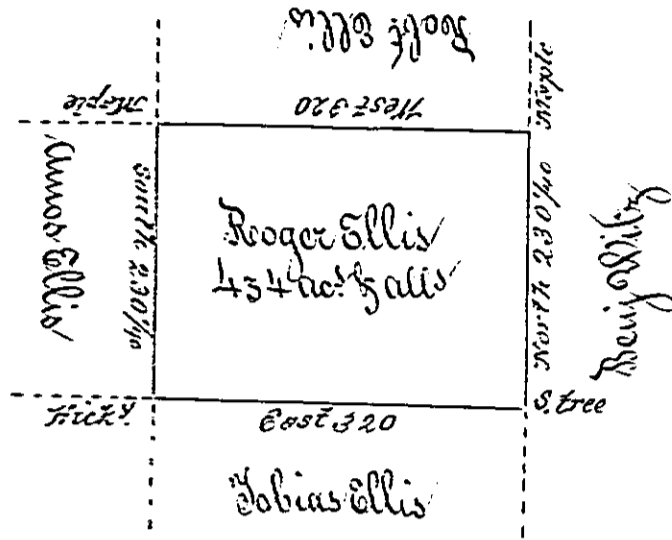 Robt Ellis
Maple
West 320
Maple
Amos Ellis
South 230 1/40
Roger Ellis
434 acs & alls
North 230 1/40
Benj
Hicky.
East 320
S. tree
Tobias Ellis